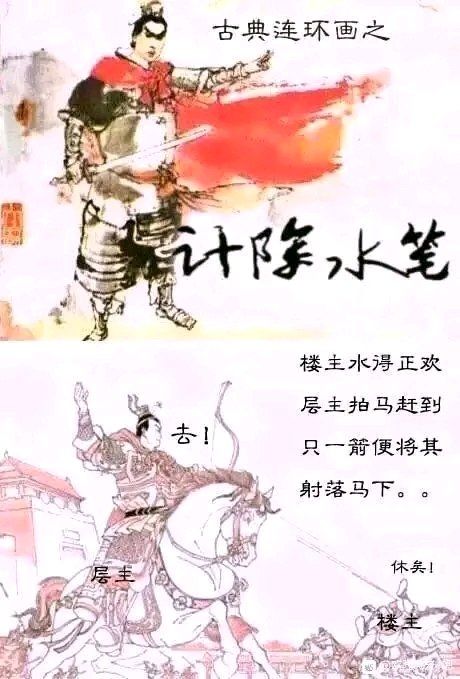 古典连环画之
计除水笔
楼主水得正欢
层主拍马赶到
只一箭便将其
射落马下。。
去!
层主
休矣!
楼主